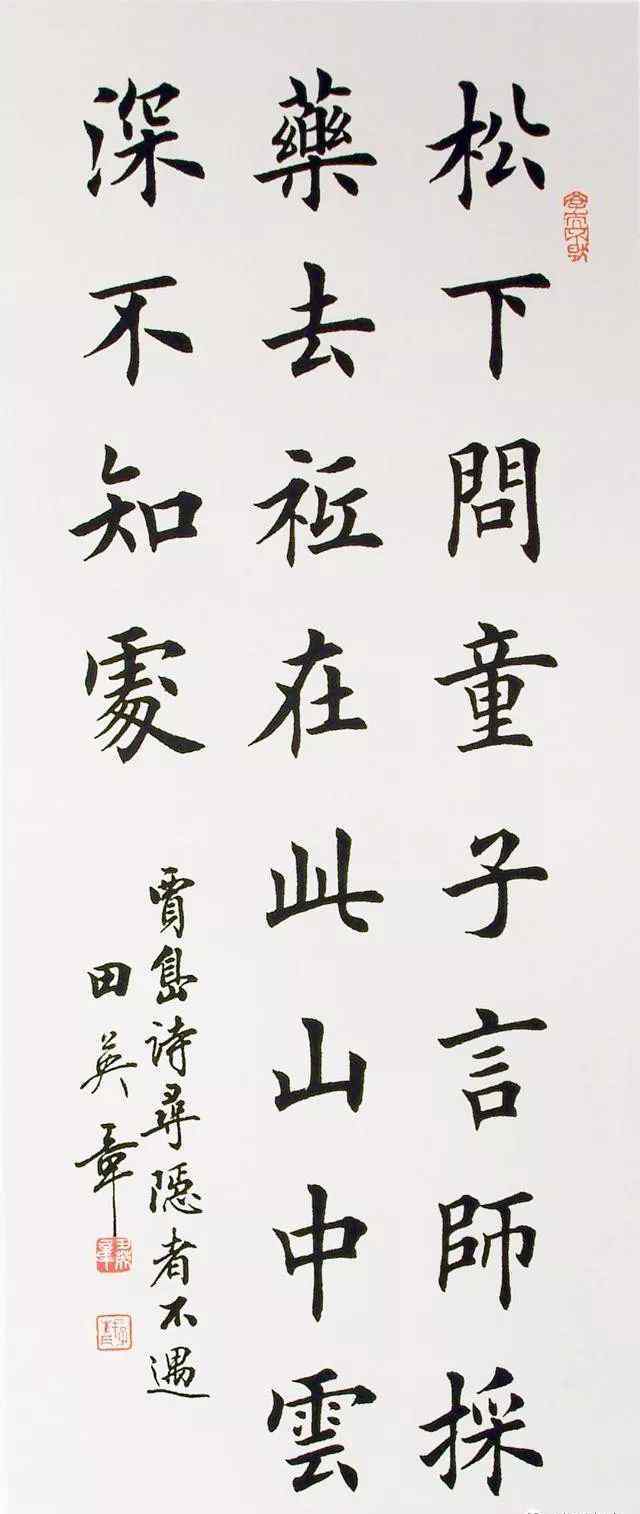 松下問童子言師採
藥去祗在此山中雲
深不知處
賈島詩尋隱者不遇
田英章